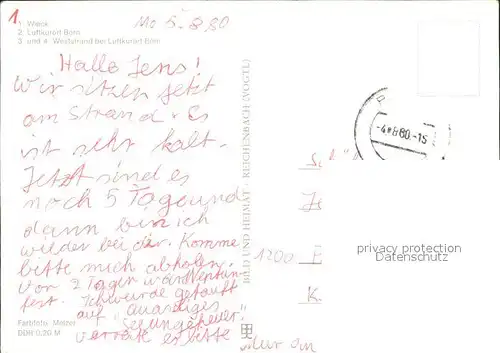 1.
1: Wieck
2: Luftkurort Born
3 und 4: Weststrand bei Luftkurort Born
Mo 5.8.80
Hallo Jens!
Wir sitzen jetzt
am Strand. Es
ist sehr kalt.
Jetzt sind es
noch 5 Tage und
dann bin ich
wieder bei dir. Komme
bitte mich abholen.
Vor 2 Tagen war Neptun-
fest. Ich wurde getauft
auf
verrate es bitte
nur an
Farbfoto: Melzer
DDR 0,20 M
BILD UND HEIMAT · REICHENBACH (VOGTL)
-4.8.80.-15
1200
privacy protection
Datenschutz